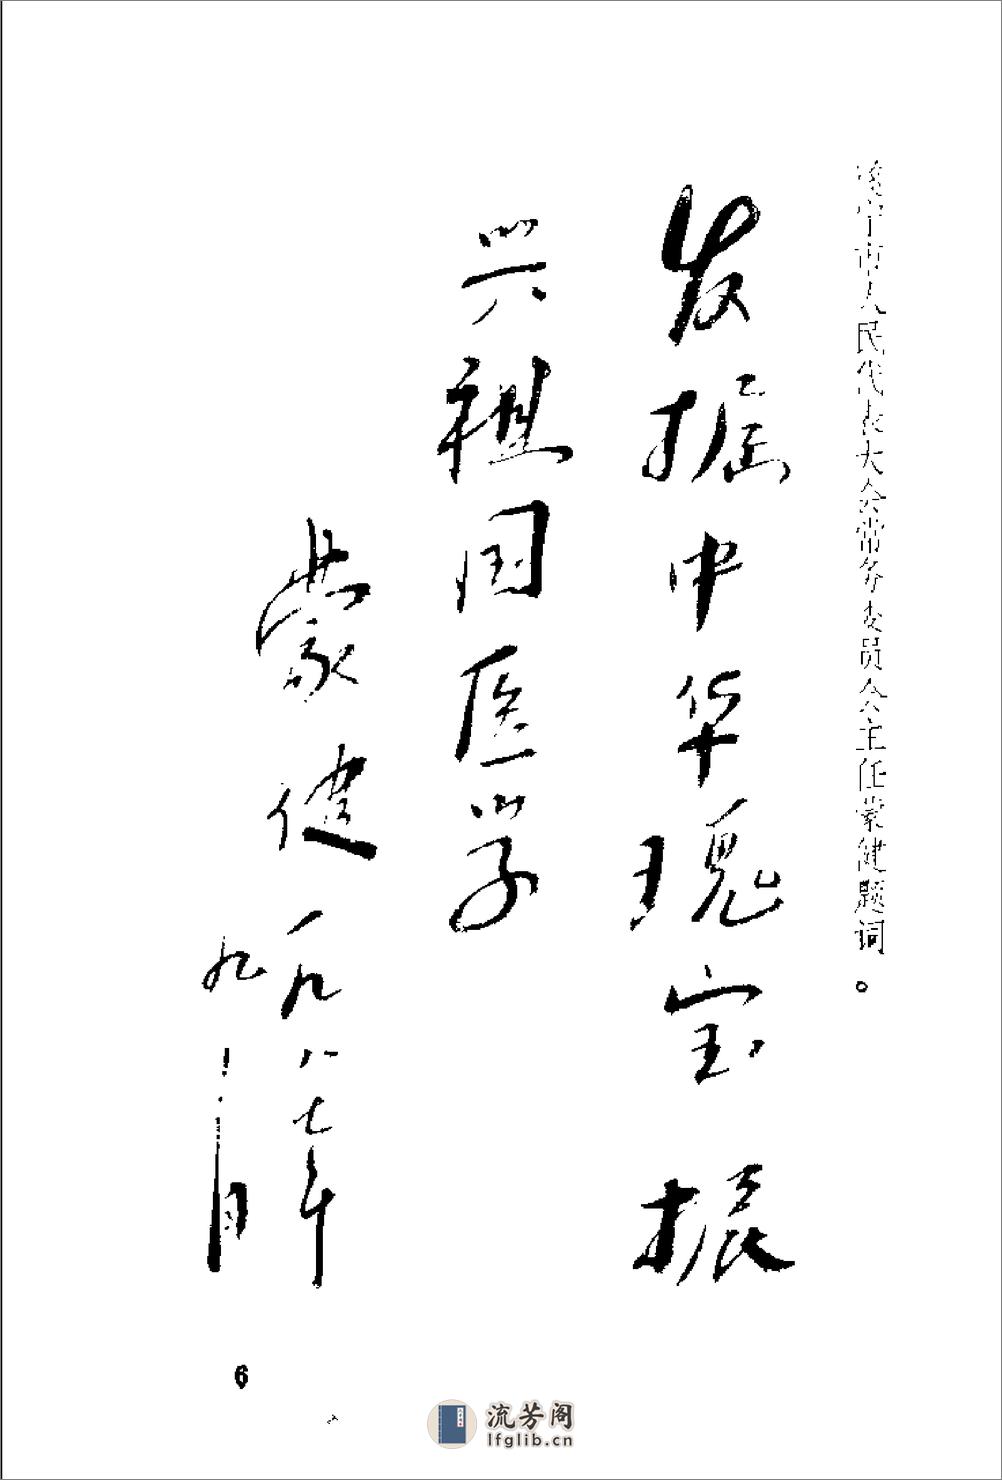 遂宁市人民代表大会常务委员会主任蒙健题词。
发掘中华瑰宝振
兴祖国医学
蒙健 一九八七年
九月
6
流芳阁
lfglib.cn